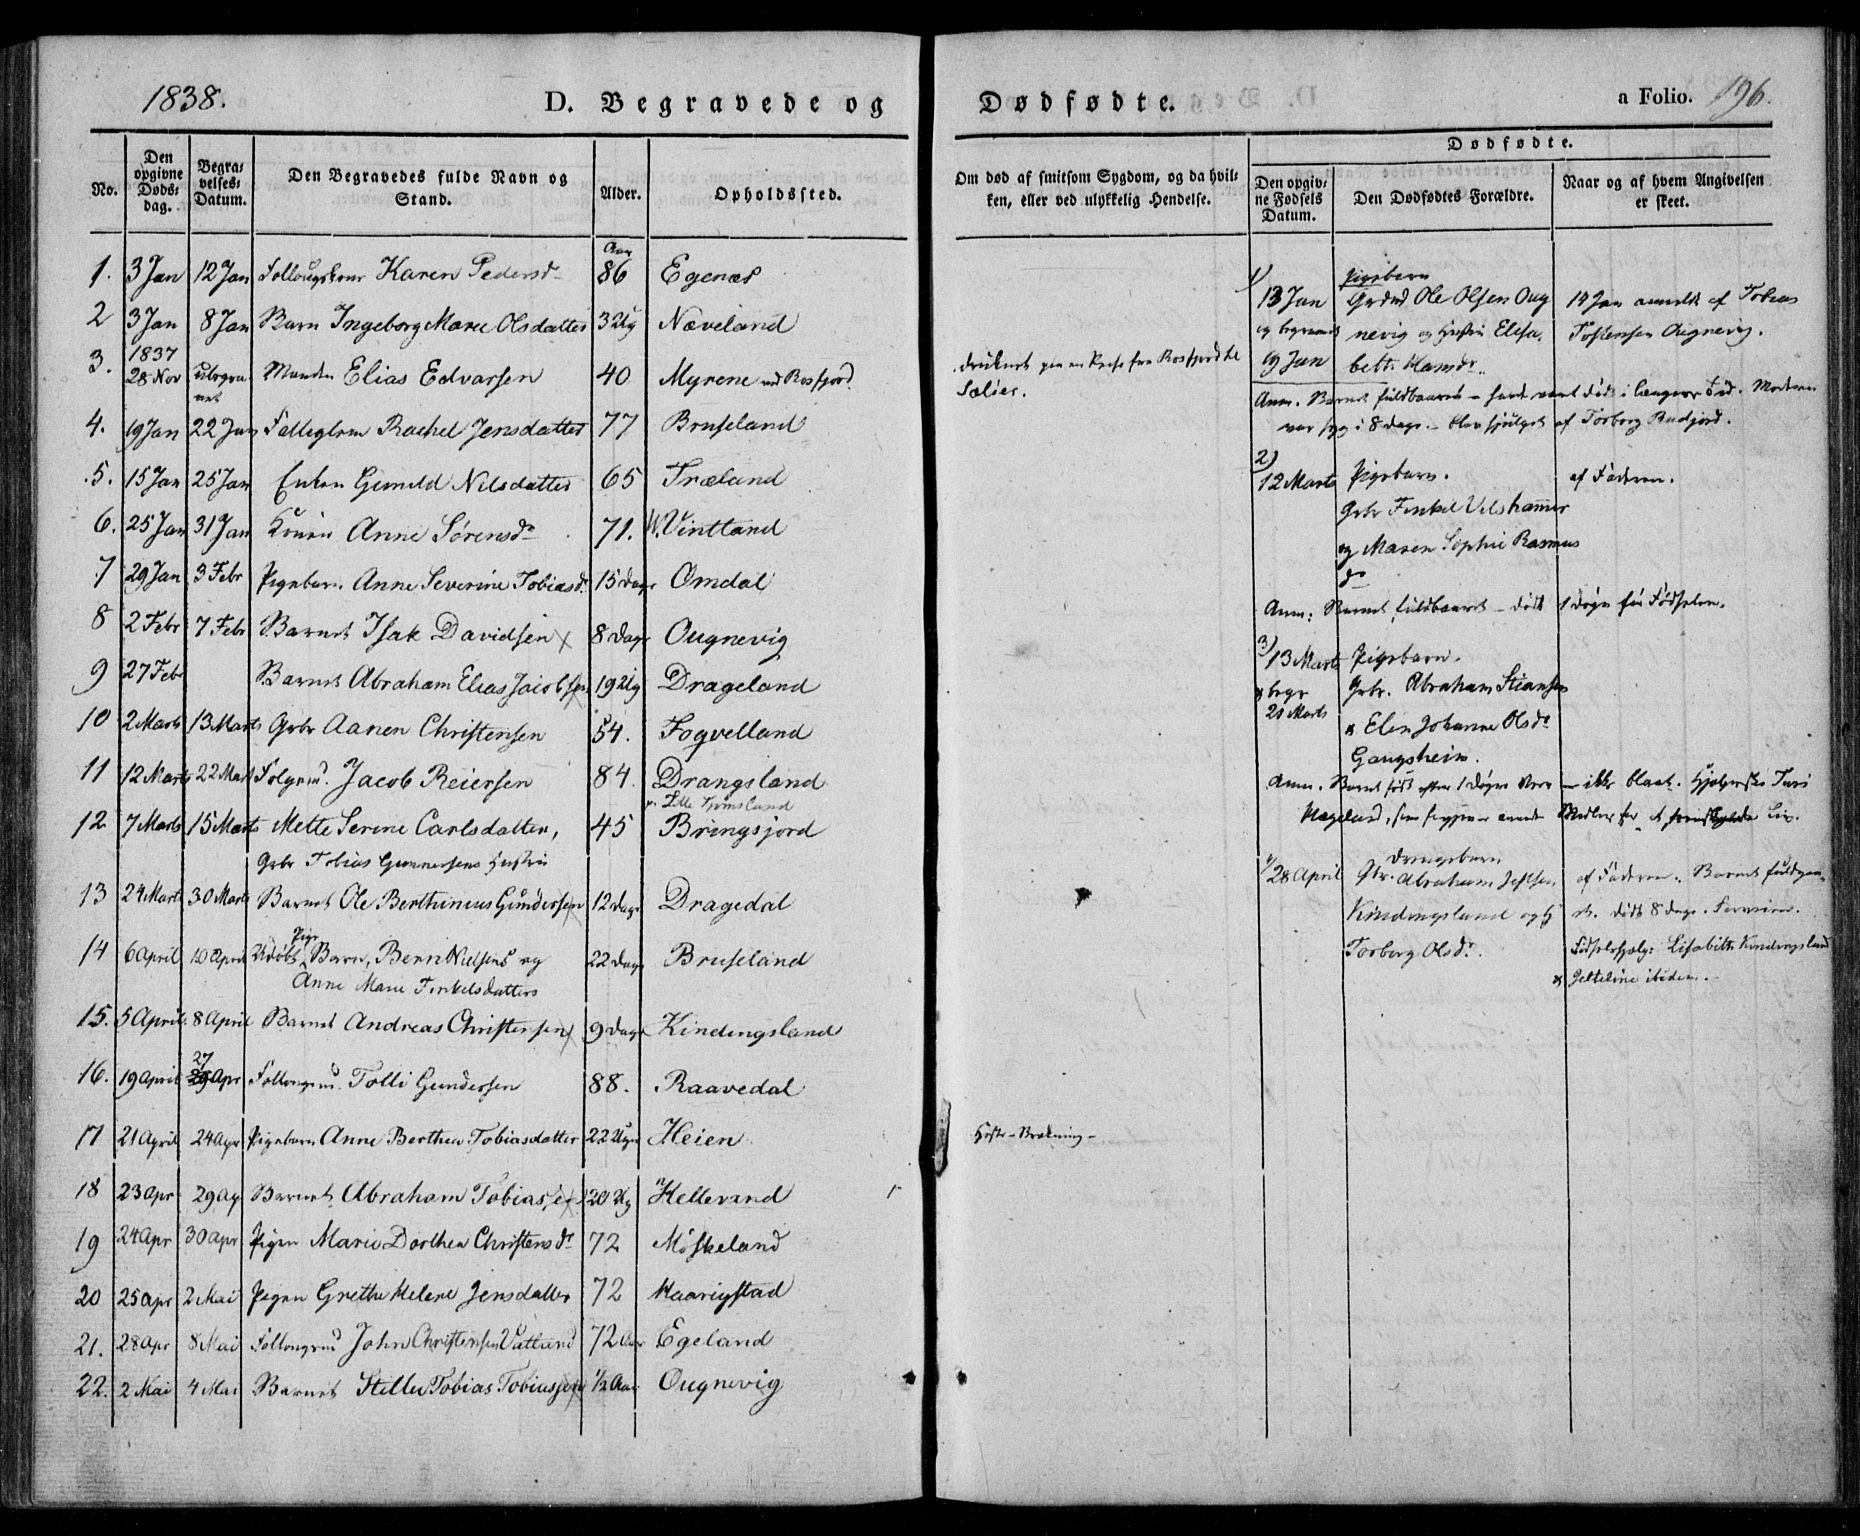 1838.
D. Begravede og Dødfødte.
a Folio. 196.
No.
Den opgivne Døds-dag.
Begra-velses-Datum.
Den Begravedes fulde Navn og Stand.
Alder.
Opholdssted.
Om død af smitsom Sygdom, og da hvil-ken, eller ved ulykkelig Hendelse.
Dødfødte.
Den opgiv-ne Fødsels Datum.
Den Dødfødtes Forældre.
Naar og af hvem Angivelsen er skeet.
1. 3 Jan 12 Jan Karen Pedersd. Aar 86 Egenæs
2 3 Jan 8 Jan Barn Ingeborg Marie Olsdatter 3 Ug Næveland
3. 1837 28 Nov ubegravet Manden Elias Edvarsen 40 Myrene ved Rosfjord. druknet paa en Reise fra Rosfjord til Seløer.
4. 19 Jan 22 Jan Rachel Jensdatter 77 Bruseland
5. 15 Jan 25 Jan Enken Gunild Nilsdatter 65 Træland
6. 25 Jan 31 Jan Konen Anne Sørensd. 71. Vintland
7 29 Jan 3 Febr Pigebarn Anne Severine Tobiasd. 15 Dage Omdal
8 2 Febr 7 Febr Barnet Isak Davidsen 8 Dage Ougnevig
9 27 Feb Barnet Abraham Elias Jacobsen 19 Ug Drageland
10 2 Marts 13 Marts Gbr Aanen Christensen 54. Fogvelland
11 12 Marts 22 Mart Folgmd. Jacob Reiersen 84. Drangsland
12 7 Marts 15 Marts Mette Serine Carlsdatter, 45 Bringsjord
Gbr Tobias Gunnersens Hustru
13 24 Marts 30 Marts Barnet Ole Berthinius Gundersen 12 Dage Dragedal
14 6 April 10 April Udøbt Pige Barn, Bernt Nielsens og 22 Dage Bruseland
Anne Marie Tinkelsdatters
15. 5 April 8 April Barnet Andreas Christensen 9 Dage Kindingsland
16. 19 April 27 Apr Tolli Gundersen 88. Raavedal
17 21 April 24 Apr Pigebarn Anne Berthea Tobiasdatter 22 Uger Heien
18 23 Apr 29 Ap Barnet Abraham Tobiasen 20 Ug Hellevand
19 24 Apr 30 Apr Pigen Marie Dorthea Christensdr 72 Møskeland
20 25 Apr 2 Mai Pigen Grethe Helene Jensdatter 72 Haarigstad
21. 28 Apr 8 Mai John Christensen Vatland 72 Aar Egeland
22. 2 Mai 4 Mai Barnet Steller Tobias Tobiassen ½ Aar Ougnevig
1) Pigebarn
13 Jan Ole Olsen Oug 14 Jan anmeldt af Tobias
og begravet nevig og Hustru Elisa Tostensen Ougnevig.
19 Jan beth Hansdr.
Anm. Barnet fuldbaaret – havde været død i længere Tid. Moderen
var syg i 8 Dage. – blev hjulpet af Torborg Rudjord.
2)
12 Marts Pigebarn. af Faderen.
Gbr Tinkel Velshammer
og Maren Sophie Rasmus
dr
Anm: Barnet fuldbaaret – dødt 1 Døgn før Fødselen.
3)
13 Marts Pigebarn.
begr Gbr. Abraham Stiansen
21 Marts & Elen Johanne Olsdr
Gangsheim.
4) Drengebarn
28 April Gbr. Abraham af Faderen. Barnet
Kindingsland og H dødt 8 Dage
Torborg Olsdr. Lisabeth Kindingsland
& ibidem.